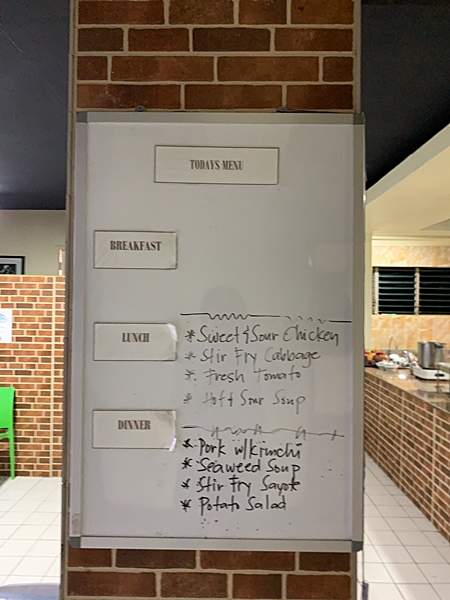 TODAYS MENU
BREAKFAST
LUNCH
* Sweet & Sour Chicken
* Stir Fry Cabbage
* Fresh Tomato
* Hot & Sour Soup
DINNER
* Pork w/kimchi
* Seaweed Soup
* Stir Fry Sayote
* Potato Salad